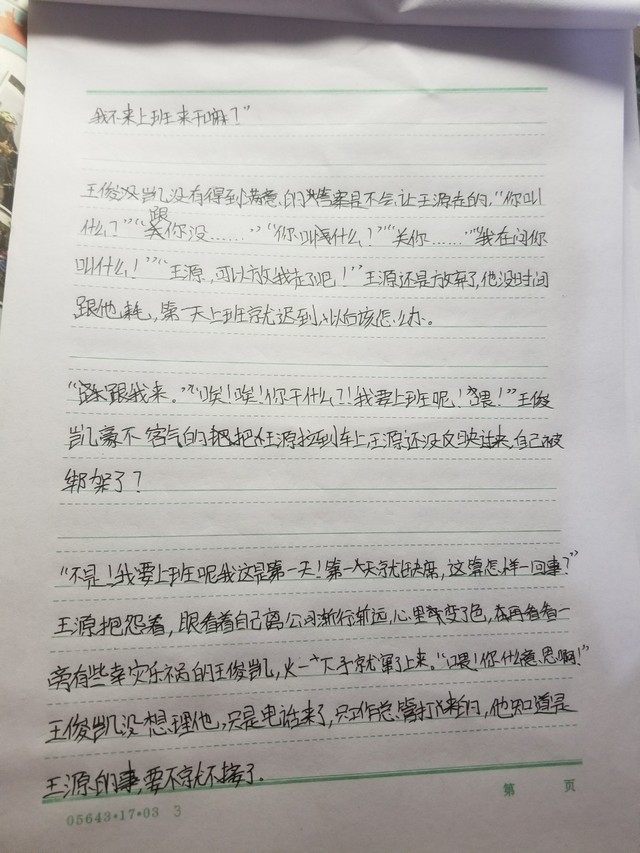 我不来上班来干嘛？”
王俊凯没有得到满意的答案是不会让王源走的，“你叫
什么？”“跟你没……”“你叫什么？”“关你……”“我在问你
叫什么！”“王源，可以放我走了吧！”王源还是放弃了，他没时间
跟他耗，第一天上班就迟到以后该怎么办。
“跟我来。”“唉！唉！你干什么？！我要上班呢！喂！”王俊
凯豪不客气的把王源拉到车上，王源还没反映过来，自己被
绑架了？
“不是！我要上班呢我这是第一天！第一天就缺席，这算怎样一回事？”
王源抱怨着，眼看着自己离公司渐行渐远，心里变了色，在再看看一
旁有些幸灾乐祸的王俊凯，火一下子就窜了上来。“喂！你什么意思啊！”
王俊凯没想理他，只是电话来了，只作总管打来的，他知道是
王源的事，要不就不接了.
05643·17·03 3
第 页